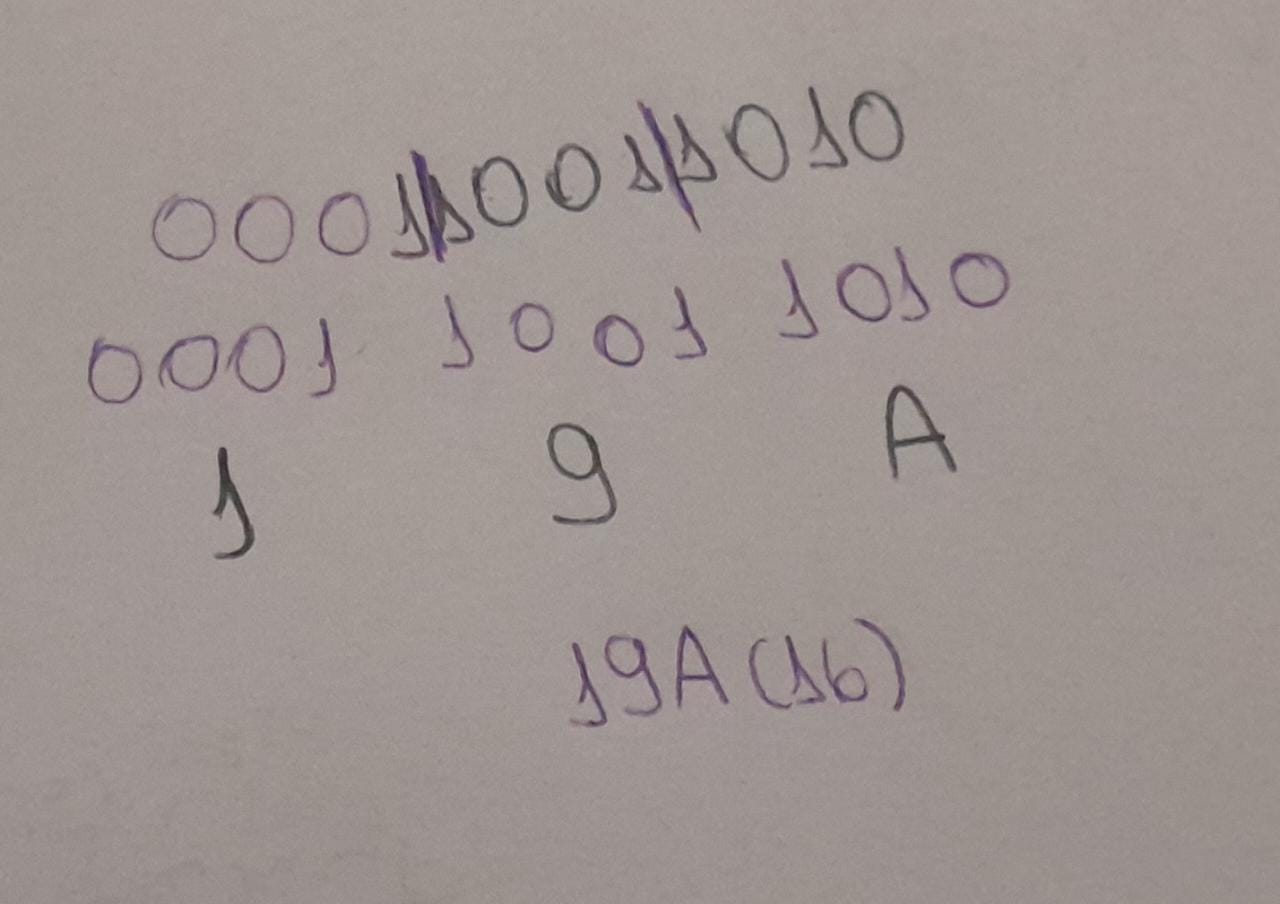 0001|1001|1010
0001 1001 1010
1 9 A
19A (16)